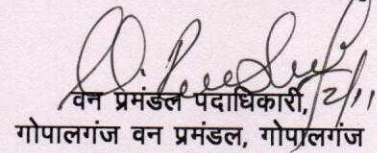 वन प्रमंडल पदाधिकारी,
गोपालगंज वन प्रमंडल, गोपालगंज